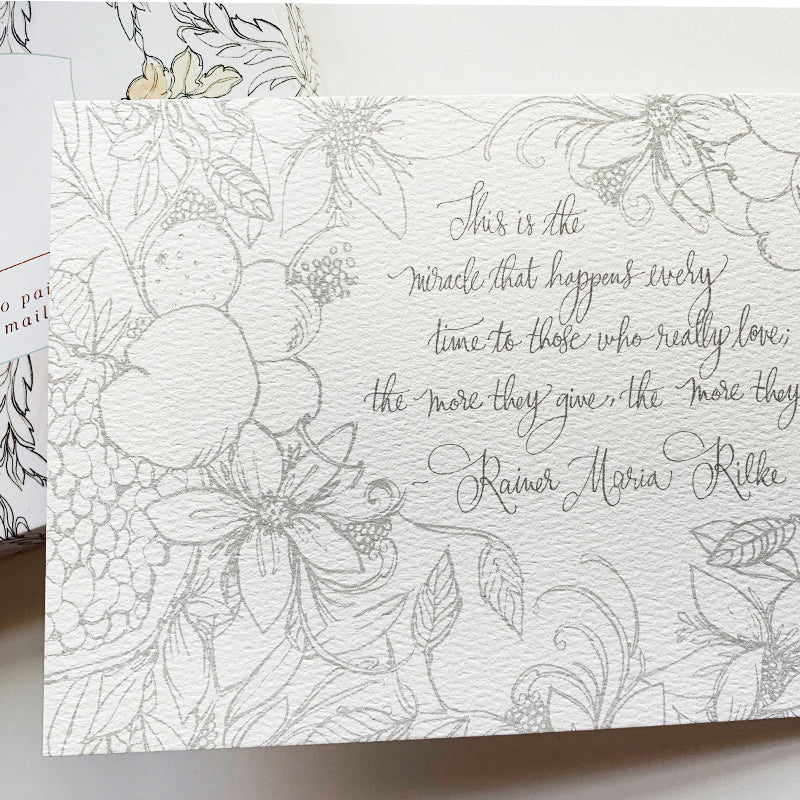 This is the
miracle that happens every
time to those who really love;
the more they give, the more they
~ Rainer Maria Rilke
o pai
mail